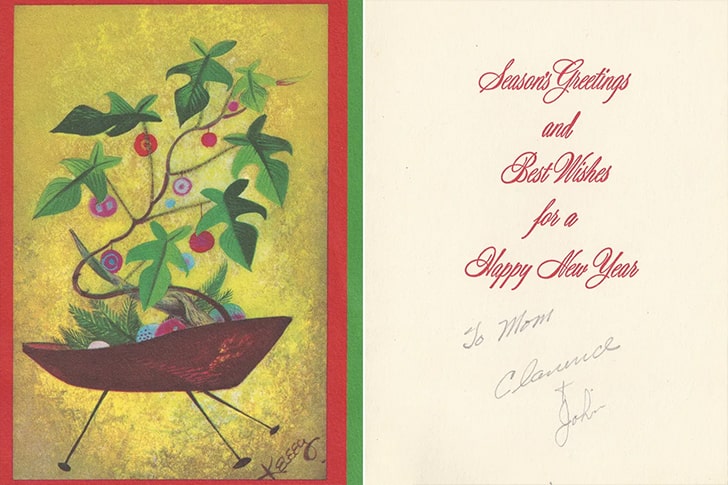 Kelly
Season's Greetings
and
Best Wishes
for a
Happy New Year
To Mom
Clarence
+
John